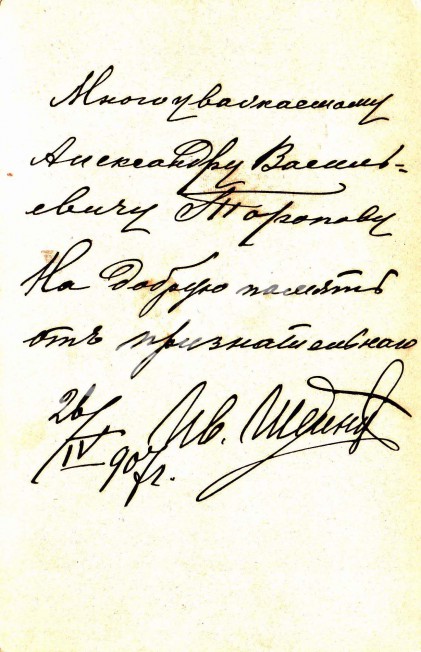 Многоуважаемому
Александру Василь-
евичу Торопову
На добрую память
отъ признательнаго
26/IV 907 г. Ив.